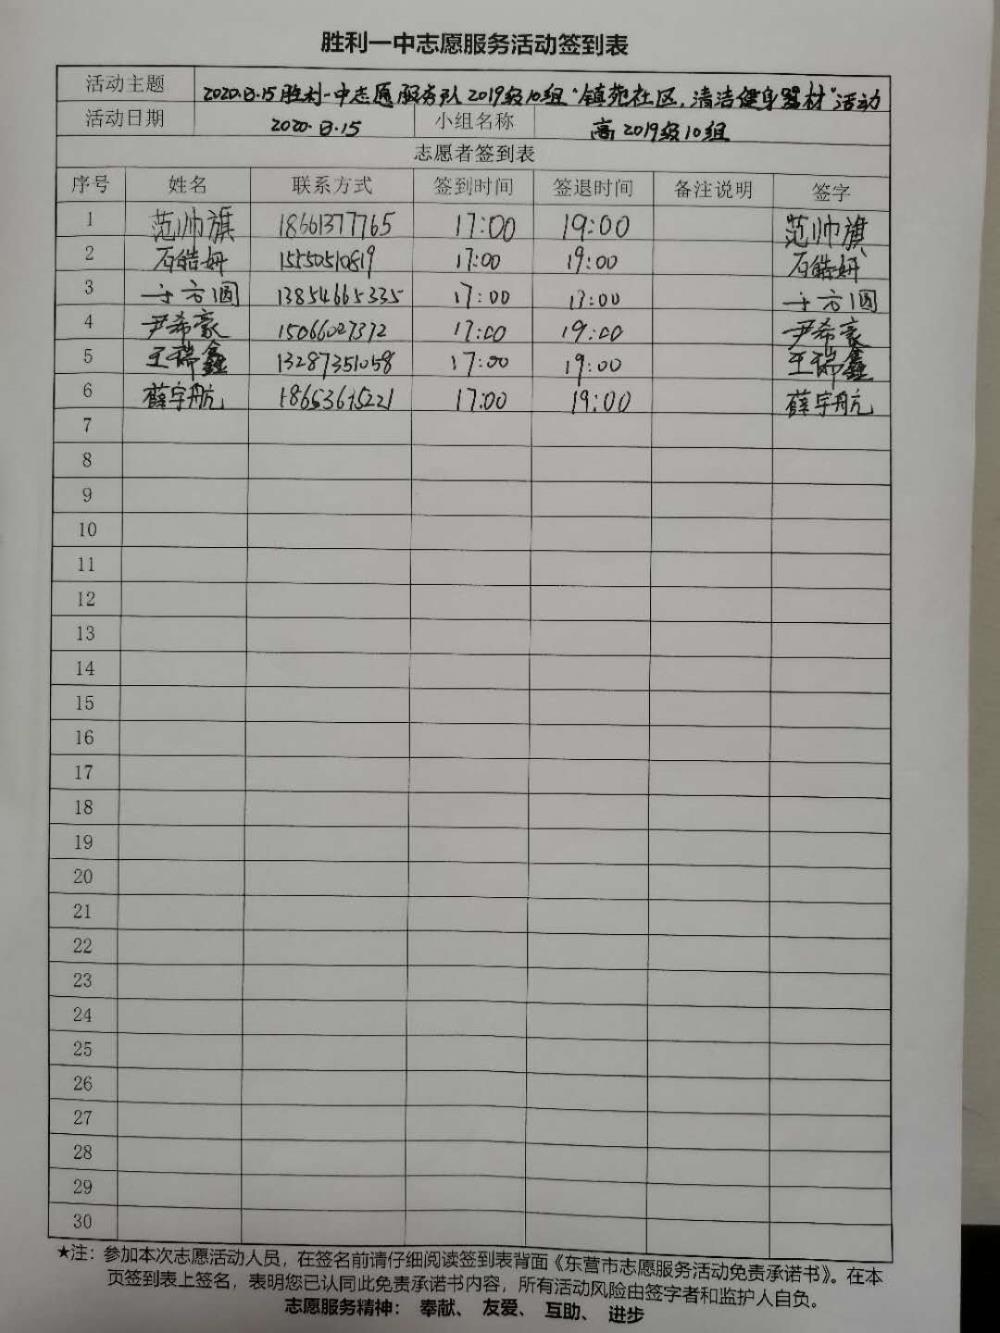 胜利一中志愿服务活动签到表
活动主题 2020.8.15胜利一中志愿服务队2019级10组"镇苑社区,清洁健身器材"活动
活动日期 2020.8.15 小组名称 高2019级10组
志愿者签到表
序号 姓名 联系方式 签到时间 签退时间 备注说明 签字
1 范帅旗 18661377765 17:00 19:00 范帅旗
2 石皓妍 15550510819 17:00 19:00 石皓妍
3 于方圆 13854665335 17:00 19:00 于方圆
4 尹希豪 15066027372 17:00 19:00 尹希豪
5 王瑞鑫 13287351058 17:00 19:00 王瑞鑫
6 薛宇航 18653615221 17:00 19:00 薛宇航
7
8
9
10
11
12
13
14
15
16
17
18
19
20
21
22
23
24
25
26
27
28
29
30
★注:参加本次志愿活动人员,在签名前请仔细阅读签到表背面《东营市志愿服务活动免责承诺书》。在本
页签到表上签名,表明您已认同此免责承诺书内容,所有活动风险由签字者和监护人自负。
志愿服务精神: 奉献、 友爱、 互助、 进步